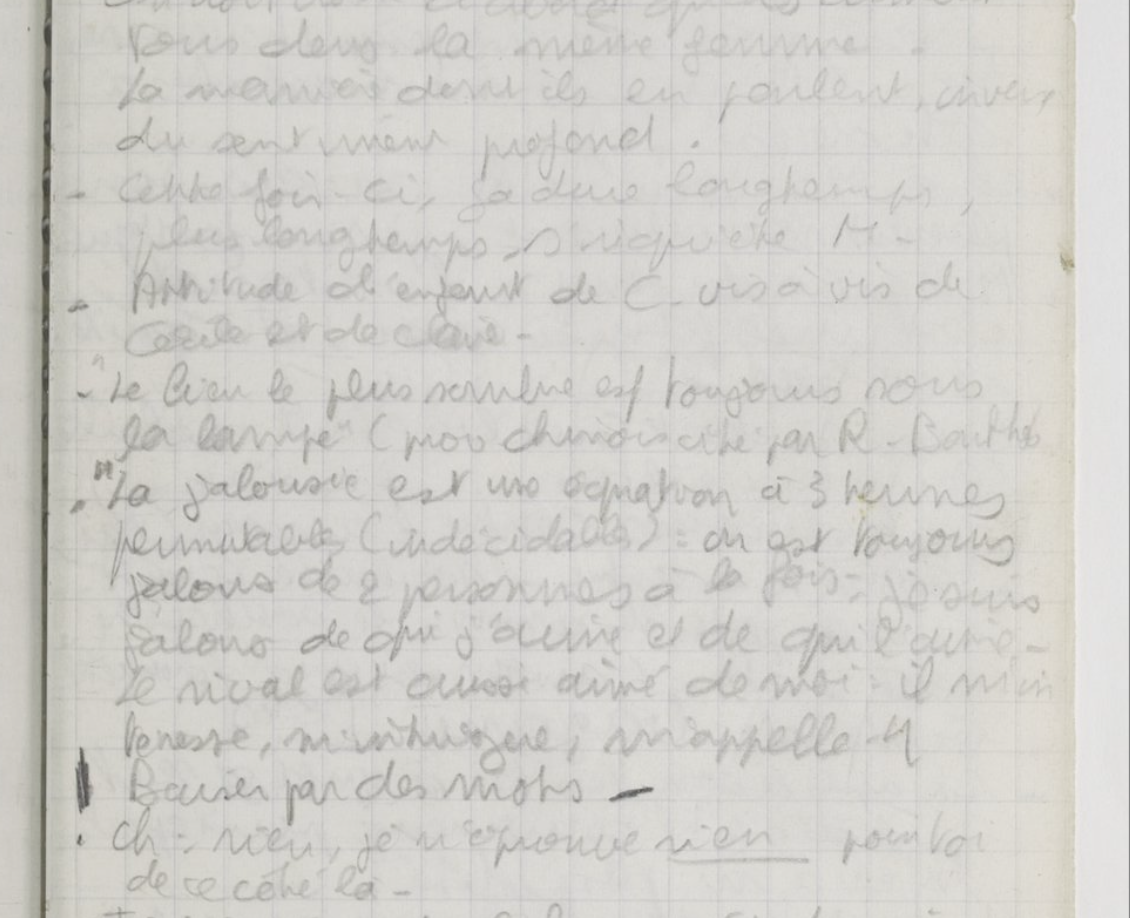 tous deux la même femme -
La manière dont ils en parlent, niveau
du sentiment profond.
- Cette fois-ci, ça dure longtemps,
plus longtemps, s'inquiète M -
- Attitude d'enfant de C vis à vis de
Cécile et de Claire -
- "Le lieu le plus sombre est toujours sous
la lampe" (prov chinois cité par R. Barthes
. "La jalousie est une équation à 3 termes
permutables (indécidables) : on est toujours
jaloux de 2 personnes à la fois : je suis
jaloux de qui j'aime et de qui l'aime -
Le rival est aussi aimé de moi : il m'in
téresse, m'intrigue, m'appelle "
Baiser par des mots -
. Ch : rien, je n'éprouve rien pour toi
de ce côté là -